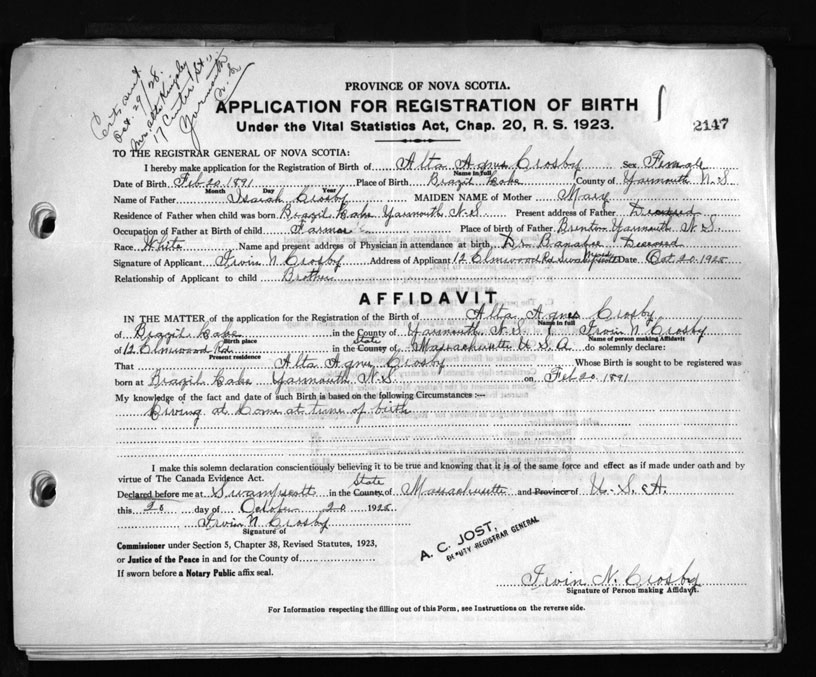 Certs. sent
Oct. 29/28.
Mrs. Alta Kingsley
17 Center St.
Yarmouth
N.S.
PROVINCE OF NOVA SCOTIA.
APPLICATION FOR REGISTRATION OF BIRTH
2147
Under the Vital Statistics Act, Chap. 20, R. S. 1923.
TO THE REGISTRAR GENERAL OF NOVA SCOTIA:
I hereby make application for the Registration of Birth of Alta Agnes Crosby Sex Female
Name in full
Date of Birth Feb 20 1891 Place of Birth Brazil Lake County of Yarmouth N.S
Month Day Year
Name of Father Isaiah Crosby MAIDEN NAME of Mother
Residence of Father when child was born Brazil Lake Yarmouth N.S. Present address of Father Deceased
Occupation of Father at Birth of child Farmer Place of birth of Father Brenton Yarmouth N.S.
Race White Name and present address of Physician in attendance at birth Dr. Deceased
Signature of Applicant Irvin N. Crosby Address of Applicant 12 Elmwood Rd Date Oct 20 1928
Relationship of Applicant to child Brother
AFFIDAVIT
IN THE MATTER of the application for the Registration of the Birth of Alta Agnes Crosby
Name in full
of Brazil Lake in the County of Yarmouth N.S. I Irvin N. Crosby
Birth place Name of person making Affidavit
of 12 Elmwood Rd. in the County of State Massachusetts U.S.A do solemnly declare:
Present residence
That Alta Agnes Crosby Whose Birth is sought to be registered was
born at Brazil Lake Yarmouth N.S. on Feb 20 1891
My knowledge of the fact and date of such Birth is based on the following Circumstances :—
Living at home at time of birth
I make this solemn declaration conscientiously believing it to be true and knowing that it is of the same force and effect as if made under oath and by
virtue of The Canada Evidence Act.
Declared before me at Swampscott in the County of State Massachusetts and Province of U.S.A.
this 20 day of October 20 1928
Irvin N Crosby
Signature of
Commissioner under Section 5, Chapter 38, Revised Statutes, 1923,
or Justice of the Peace in and for the County of
If sworn before a Notary Public affix seal.
A. C. JOST,
DEPUTY REGISTRAR GENERAL
Irvin N. Crosby
Signature of Person making Affidavit.
For Information respecting the filling out of this Form, see Instructions on the reverse side.